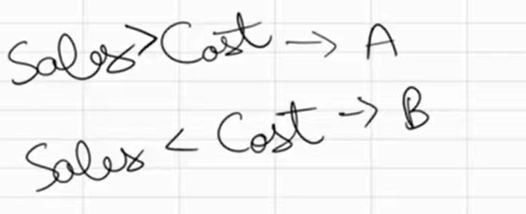 Sales > Cost → A
Sales < Cost → B